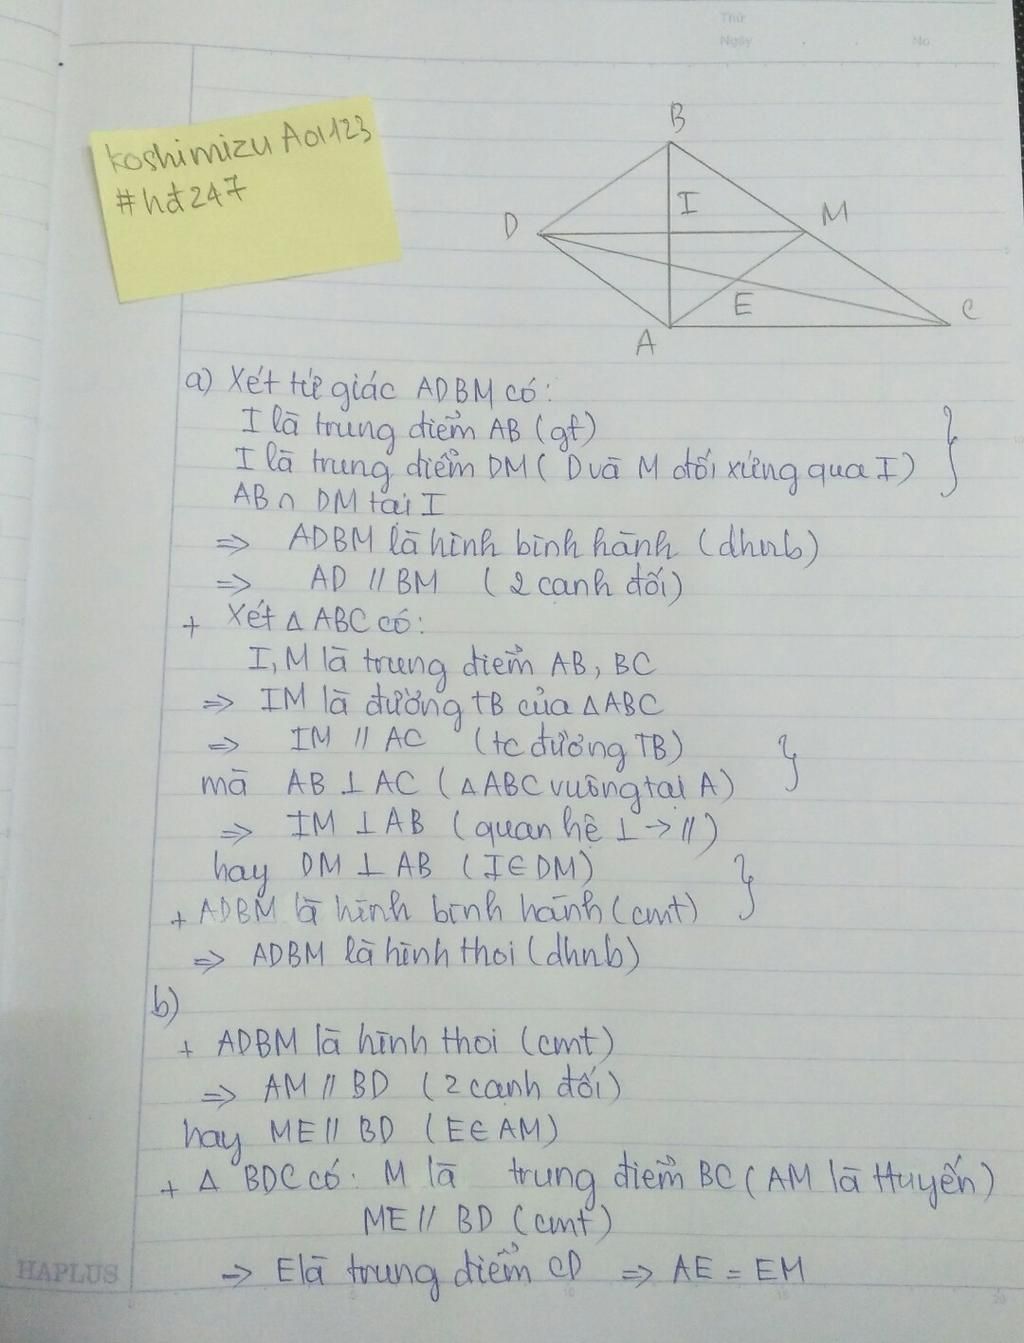 Thứ
Ngày . . No.
Koshimizu Aoi123
#hđ247
B
I
D
M
E
C
A
a) Xét tứ giác ADBM có:
I là trung điểm AB (gt)
I là trung điểm DM ( D và M đối xứng qua I)
AB ∩ DM tại I
=> ADBM là hình bình hành (dhnb)
=> AD // BM ( 2 cạnh đối)
+ Xét Δ ABC có:
I, M là trung điểm AB, BC
=> IM là đường TB của ΔABC
=> IM // AC (tc đường TB)
mà AB ⊥ AC ( ΔABC vuông tại A)
=> IM ⊥ AB ( quan hệ ⊥ → //)
hay DM ⊥ AB ( I ∈ DM)
+ ADBM là hình bình hành (cmt)
=> ADBM là hình thoi (dhnb)
b)
+ ADBM là hình thoi (cmt)
=> AM // BD ( 2 cạnh đối)
hay ME // BD ( E ∈ AM)
+ Δ BDC có: M là trung điểm BC ( AM là ttuyến)
ME // BD (cmt)
=> E là trung điểm CD => AE = EM
HAPLUS